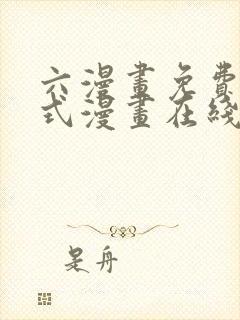 六漫畫免費
式漫畫在綫
是舟